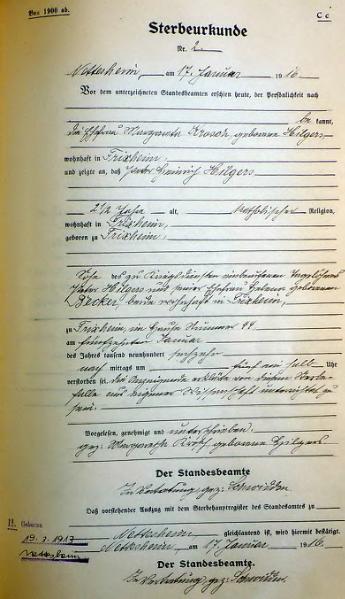 Bis 1900 ab.
C c
Sterbeurkunde
Nr. 2
Nettersheim, am 17. Januar 1916
Vor dem unterzeichneten Standesbeamten erschien heute, der Persönlichkeit nach
be kannt,
die Ehefrau Margareth geborene Hilgers
wohnhaft in Frixheim,
und zeigte an, daß Peter Heinrich Hilgers
2 1/2 Jahre alt, katholischer Religion,
wohnhaft in Frixheim,
geboren zu Frixheim,
Sohn des zu Kriegsdiensten einberufenen
Peter Hilgers und seiner Ehefrau geborenen
Becker, beide wohnhaft in Frixheim,
zu Frixheim, im Hause Nummer 44
am fünfzehnten Januar
des Jahres tausend neunhundert sechzehn
nach mittags um fünf ein halb Uhr
verstorben sei. Die Anzeigende erklärte von diesem Sterbe-
falle aus eigener Wissenschaft unterrichtet zu
sein.
Vorgelesen, genehmigt und unterschrieben
gez: Margareth geborene Hilgers
Der Standesbeamte
In Vertretung: gez:
Daß vorstehender Auszug mit dem Sterbehauptregister des Standesamtes zu
Nettersheim gleichlautend ist, wird hiermit bestätigt.
Nettersheim, am 17 Januar 1916.
Der Standesbeamte.
In Vertretung: gez:
H. Geboren
19. 7. 1913